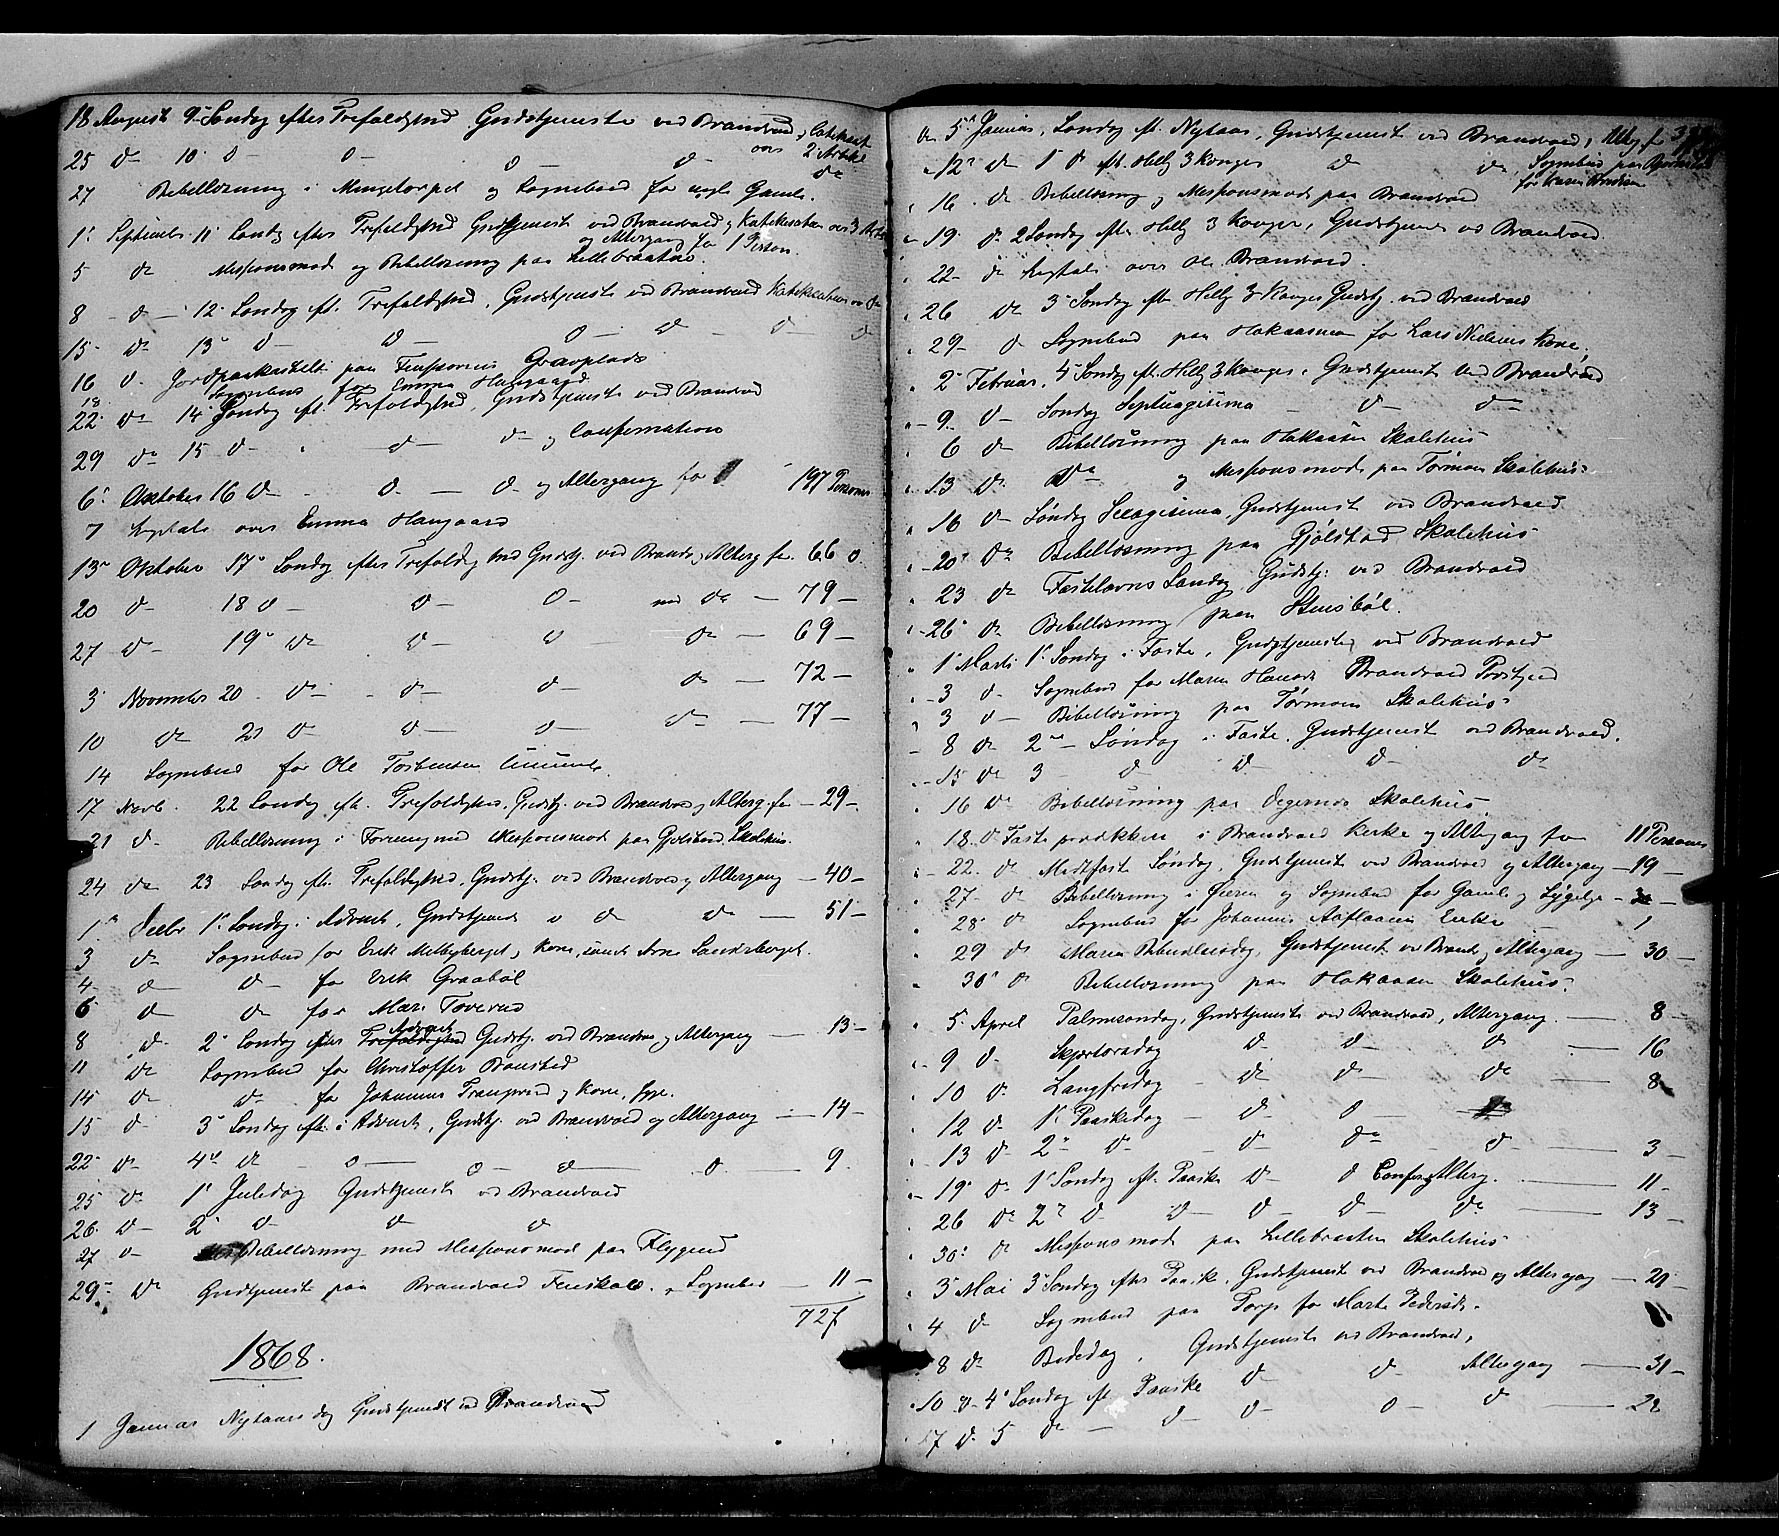 18 August 9 Søndag efter Trefoldighed Gudstjeneste ved Brandvold, Catekisat
over 2 Artikl
25 do 10 do do do do do
27 Bibellæsning i og Sognebud for nogle Gamle.
1 Septimber 11 Søndag efter Trefoldighed Gudstjenest ved Brandvold og Katekisation over 3 Art
og Altergang for 1 Person.
5 do Missionsmøde og Bibellæsning paa Lillebraaten.
8 do 12 Søndag eft. Trefoldighed, Gudstjeneste ved Brandvold Katekisation
15 do 13 do do do do do do
16 do Jordpaakastelse paa Gravplads
18 Sognebud for Emma Haugaard
22 do 14 Søndag eft. Trefoldighed, Gudstjeneste ved Brandvold
29 do 15 do do do og Confirmation
6 Oktober 16 do do do og Altergang for 197 Personer
7 Ligtale over Emma Haugaard
13 Oktober 17 Søndag efter Trefoldighed Gudstj. ved Brandv. og Alterg. for 66 do
20 do 18 do do do med do — 79 —
27 do 19 do do do do — 69 —
3 November 20 do do do do — 72 —
10 do 21 do do do do — 77 —
14 Sognebud for Ole Torbensen
17 Novb. 22 Søndag eft. Trefoldighed, Gudstj. ved Brandvold og Alterg. for — 29 —
21 do Bibellæsning i Forening med Missionsmøde paa Gjølstad Skolehus.
24 do 23 Søndag eft. Trefoldighed, Gudstj. ved Brandvold og Altergang — 40 —
1 Decbr 1 Søndag i Advent, Gudstjenest v do do — 51 —
3 do Sognebud for Erik Melbyberget, Kone, samt Arne Sandsberget.
4 do do for Erik Graabøl
6 do do for Mari Toverud
8 do 2 Søndag efter Trefoldighed Advent Gudstj. ved Brandvold og Altergang — 13 —
11 do Sognebud for Christoffer
14 do do for Johannes og Kone, syge.
15 do 3 Søndag eft. i Advent, Gudstj. ved Brandvold og Altergang — 14 —
22 do 4 do do do do do — 9.
25 do 1 Juledag Gudstjeneste ved Brandvold
26 do 2 do do do
27 do Bibellæsning med Missionsmøde paa Flygind
29 do Gudstjeneste paa Brandvold Finskole, Sognebud — 11 —
727
1868.
1 Januar Nytaarsdag Gudstjeneste ved Brandvold
den 5 Januar, Søndag eft. Nytaar, Gudstjenest ved Brandvold, Alterg. for
12 do 1 do eft. Hellig 3 Konger do do, Sognebud paa
for Karen
16 do Bibellæsning og Missionsmøde paa Brandvold
19 do 2 Søndag efter Hellig 3 Konger, Gudstjeneste ved Brandvold.
22 do Ligtale over Ole Brandvold.
26 do 3 Søndag efter Hellig 3 Konger Gudstj. ved Brandvold
29 do Sognebud paa Hokaasen for Lars Nielsens Kone,
2 Februar, 4 Søndag eft. Hellig 3 Konger, Gudstjeneste ved Brandvold
9 do Søndag Septuagesima do do
6 do Bibellæsning paa Hokaasen Skolehus
13 do do og Missionsmøde paa Tørmoen Skolehus
16 do Søndag Sexagesima, Gudstjenest ved Brandvold
20 do Bibellæsning paa Gjølstad Skolehus
23 do Fastelavns Søndag, Gudstj. ved Brandvold
26 do Bibellæsning paa Husbøl.
1 Marts 1 Søndag i Faste, Gudstjeneste ved Brandvold
3 do Sognebud for Maren Brandvold
3 do Bibellæsning paa Tørmoen Skolehus
8 do 2 Søndag i Faste, Gudstjenest ved Brandvold.
15 do 3 do do do do
16 do Bibellæsning paa Skolehus
18 do Faste prædikken i Brandvold Kirke og Altergang for 11 Personer
22 do Midtfaste Søndag, Gudstjenest ved Brandvold og Altergang — 19 —
27 do Bibellæsning i Øieren og Sognebud for Gamle og Sygelige —
28 do Sognebud for Johannes Enke — 1
29 do Maria Bebudelsesdag, Gudstjenest ved Brandv., Altergang — 30 —
30 do Bibellæsning paa Hokaasen Skolehus.
5 April Palmesøndag, Gudstjeneste ved Brandvold, Altergang. — 8 —
9 do Skjærtorsdag do do do — 16
10 do Langfredag do do do — 8
12 do 1 Paaskedag do do do
13 do 2 do do do do — 3 —
19 do 1 Søndag eft. Paaske do do Confer. Alterg. — 11 —
26 do 2 do do do do do — 13 —
30 do Missionsmøde paa Lillebraaten Skolehus
3 Mai 3 Søndag efter Paaske, Gudstjeneste ved Brandvold og Altergang — 21 —
4 do Sognebud paa Torp for Marte Pedersd.
8 do Bededag, Gudstjeneste ved Brandvold,
10 do 4 Søndag eft. Paaske do do Altergang — 31 —
17 do 5 do do do do do — 22